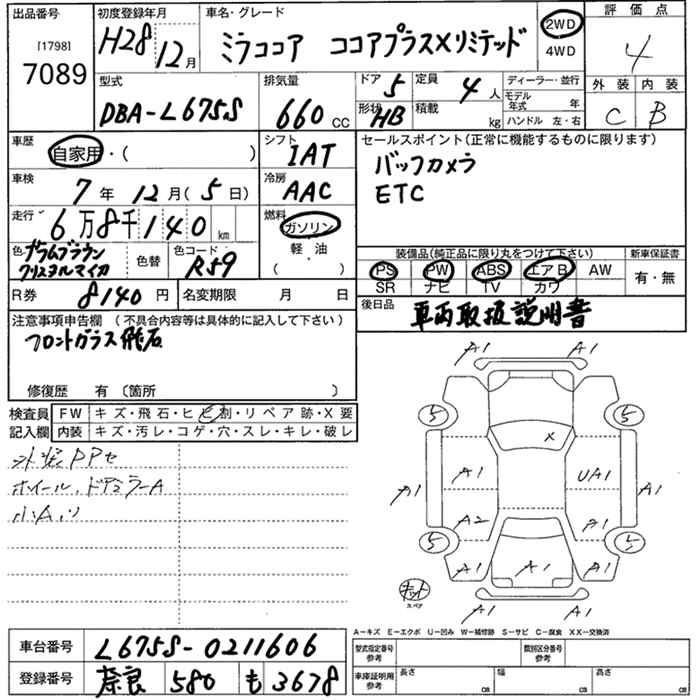 出品番号 初度登録年月 車名・グレード 評価点
[1798] 7089 H28 12月 ミラココア ココアプラスXリミテッド 2WD 4WD 4
型式 排気量 ドア 5 定員 4人 ディーラー・並行 外装 内装
DBA-L675S 660 CC 形状 HB 積載 kg モデル年式 年 ハンドル 左・右 C B
車歴 シフト セールスポイント(正常に機能するものに限ります)
自家用・( ) IAT バックカメラ
車検 冷房 ETC
7年 12月(5日) AAC
走行 6万8千140km 燃料 ガソリン
軽・油
( )
色 プラムブラウンクリスタルマイカ 色替 色コード R59
装備品(純正品に限り丸をつけて下さい) 新車保証書
PS PW ABS エアB AW 有・無
SR ナビ TV カワ
R券 8140円 名変期限 月 日 後日品 車両取扱説明書
注意事項申告欄 (不具合内容等は具体的に記入して下さい)
フロントガラス飛石
修復歴 有 〔箇所 〕
検査員記入欄 FW キズ・飛石・ヒビ割・リペア跡・X要
内装 キズ・汚レ・コゲ・穴・スレ・キレ・破レ
ホイール、ドアミラーA
小A
A1 A1
5 5
X
A1 A1 UA1 A1
A2 A1
5 5
A1 A1 A1
キット
スペア
A1 A1
A-キズ E-エクボ U-凹み W-補修跡 S-サビ C-腐食 XX-交換済
車台番号 L675S-0211606 型式指定番号 参考 類別区分番号 参考
登録番号 奈良 580 も 3678 車庫証明用 参考 長さ cm 幅 cm 高さ cm